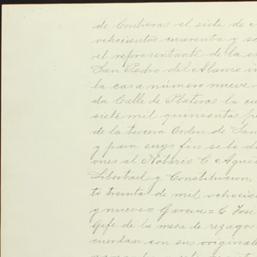 de Contreras el siete de e
vehcientos cuarenta y se
el representante de la e
San Pedro del Alamo in
la casa número nueve
da Calle de Plateros la cu
siete mil quinientos p
de la tercera Orden de San
y para cuyo fin se le di
ones al Notario C. Agus
Libertad y Constitucion
to treinta de mil ochocie
y nueve= Garcia= C. José
Gefe de la mesa de rezago
cuerdan con sus originale